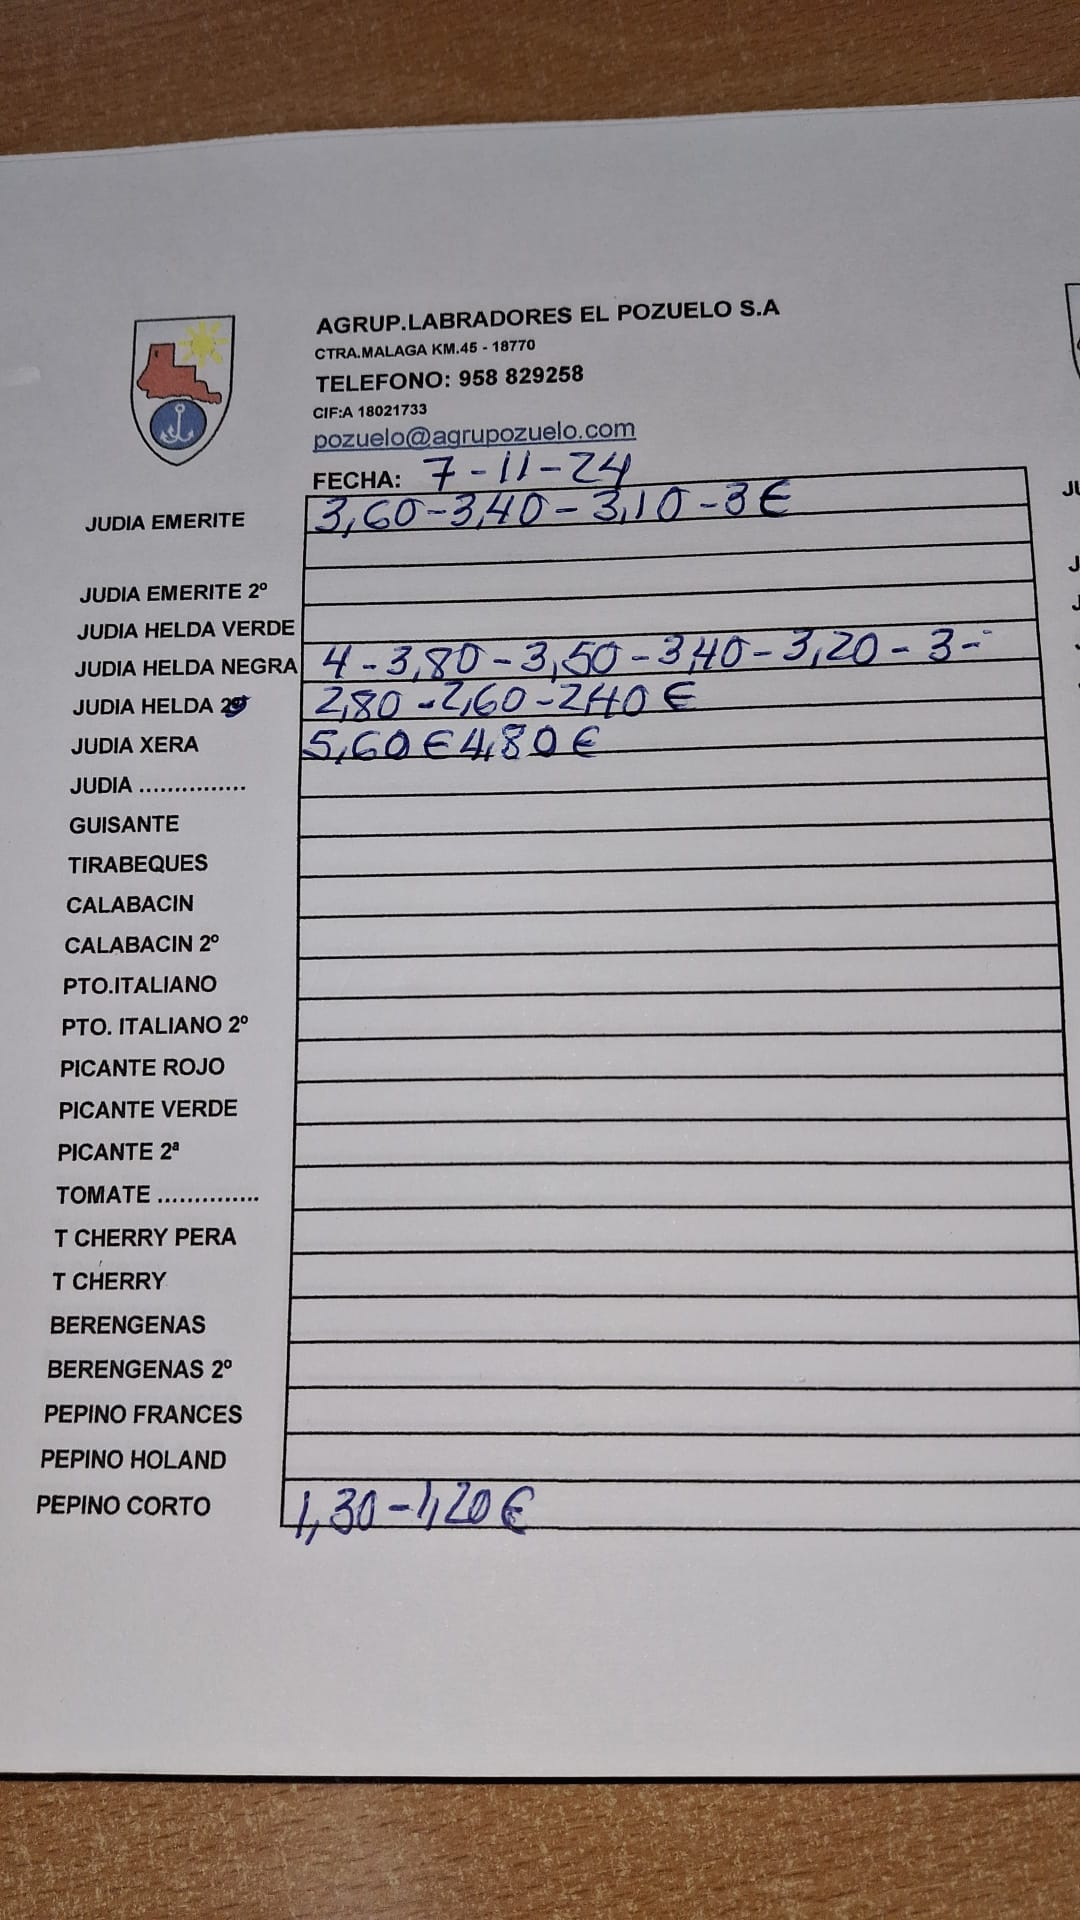 AGRUP.LABRADORES EL POZUELO S.A
CTRA.MALAGA KM.45 - 18770
TELEFONO: 958 829258
CIF:A 18021733
pozuelo@agrupozuelo.com
FECHA: 7-11-24
JUDIA EMERITE 3,60-3,40-3,10-3€
JUDIA EMERITE 2º
JUDIA HELDA VERDE
JUDIA HELDA NEGRA 4-3,80-3,50-3,40-3,20-3-
JUDIA HELDA 2,80-2,60-2,40€
JUDIA XERA 5,60€ 4,80€
JUDIA ...............
GUISANTE
TIRABEQUES
CALABACIN
CALABACIN 2º
PTO.ITALIANO
PTO. ITALIANO 2º
PICANTE ROJO
PICANTE VERDE
PICANTE 2ª
TOMATE ..............
T CHERRY PERA
T CHERRY
BERENGENAS
BERENGENAS 2º
PEPINO FRANCES
PEPINO HOLAND
PEPINO CORTO 1,30-1,20€